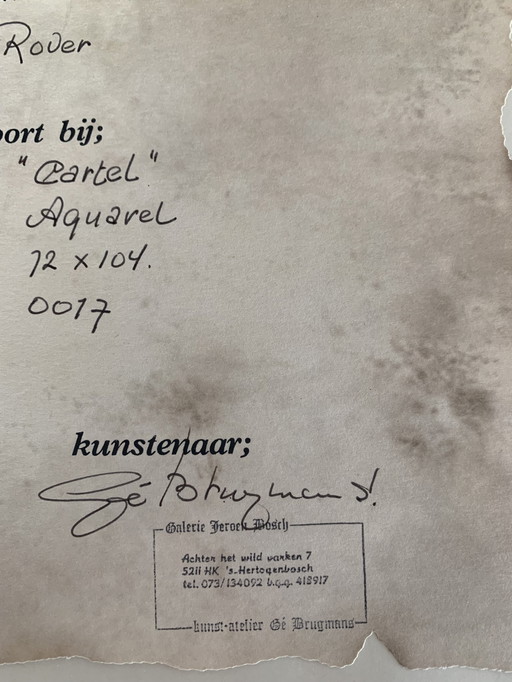 Rover
oort bij;
"Cartel"
Aquarel
72 x 104.
0017
kunstenaar;
Gé Brugmans!
Galerie Jeroen Bosch
Achter het wild varken 7
5211 HK 's-Hertogenbosch
tel. 073/134092 b.g.g. 418917
kunst-atelier Gé Brugmans